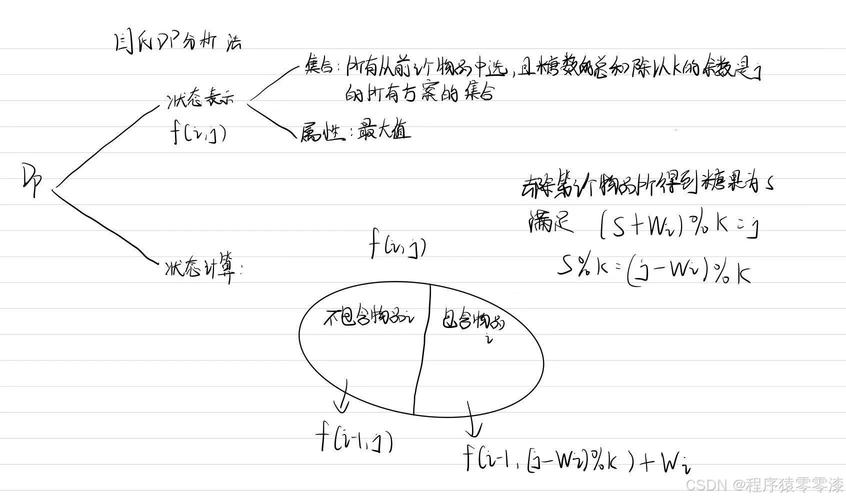 闫氏DP分析法
集合:所有从前i个物品中选,且糖数的总和除以K的余数是j
的所有方案的集合
状态表示
f(i,j)
属性:最大值
DP
去除第i个物品所得到糖果为S
满足 (S+Wi)%K=j
S%K=(j-Wi)%K
状态计算:
f(i,j)
不包含物品i
包含物品
i
f(i-1,j)
f(i-1,(j-Wi)%K)+Wi
CSDN @程序猿零零漆